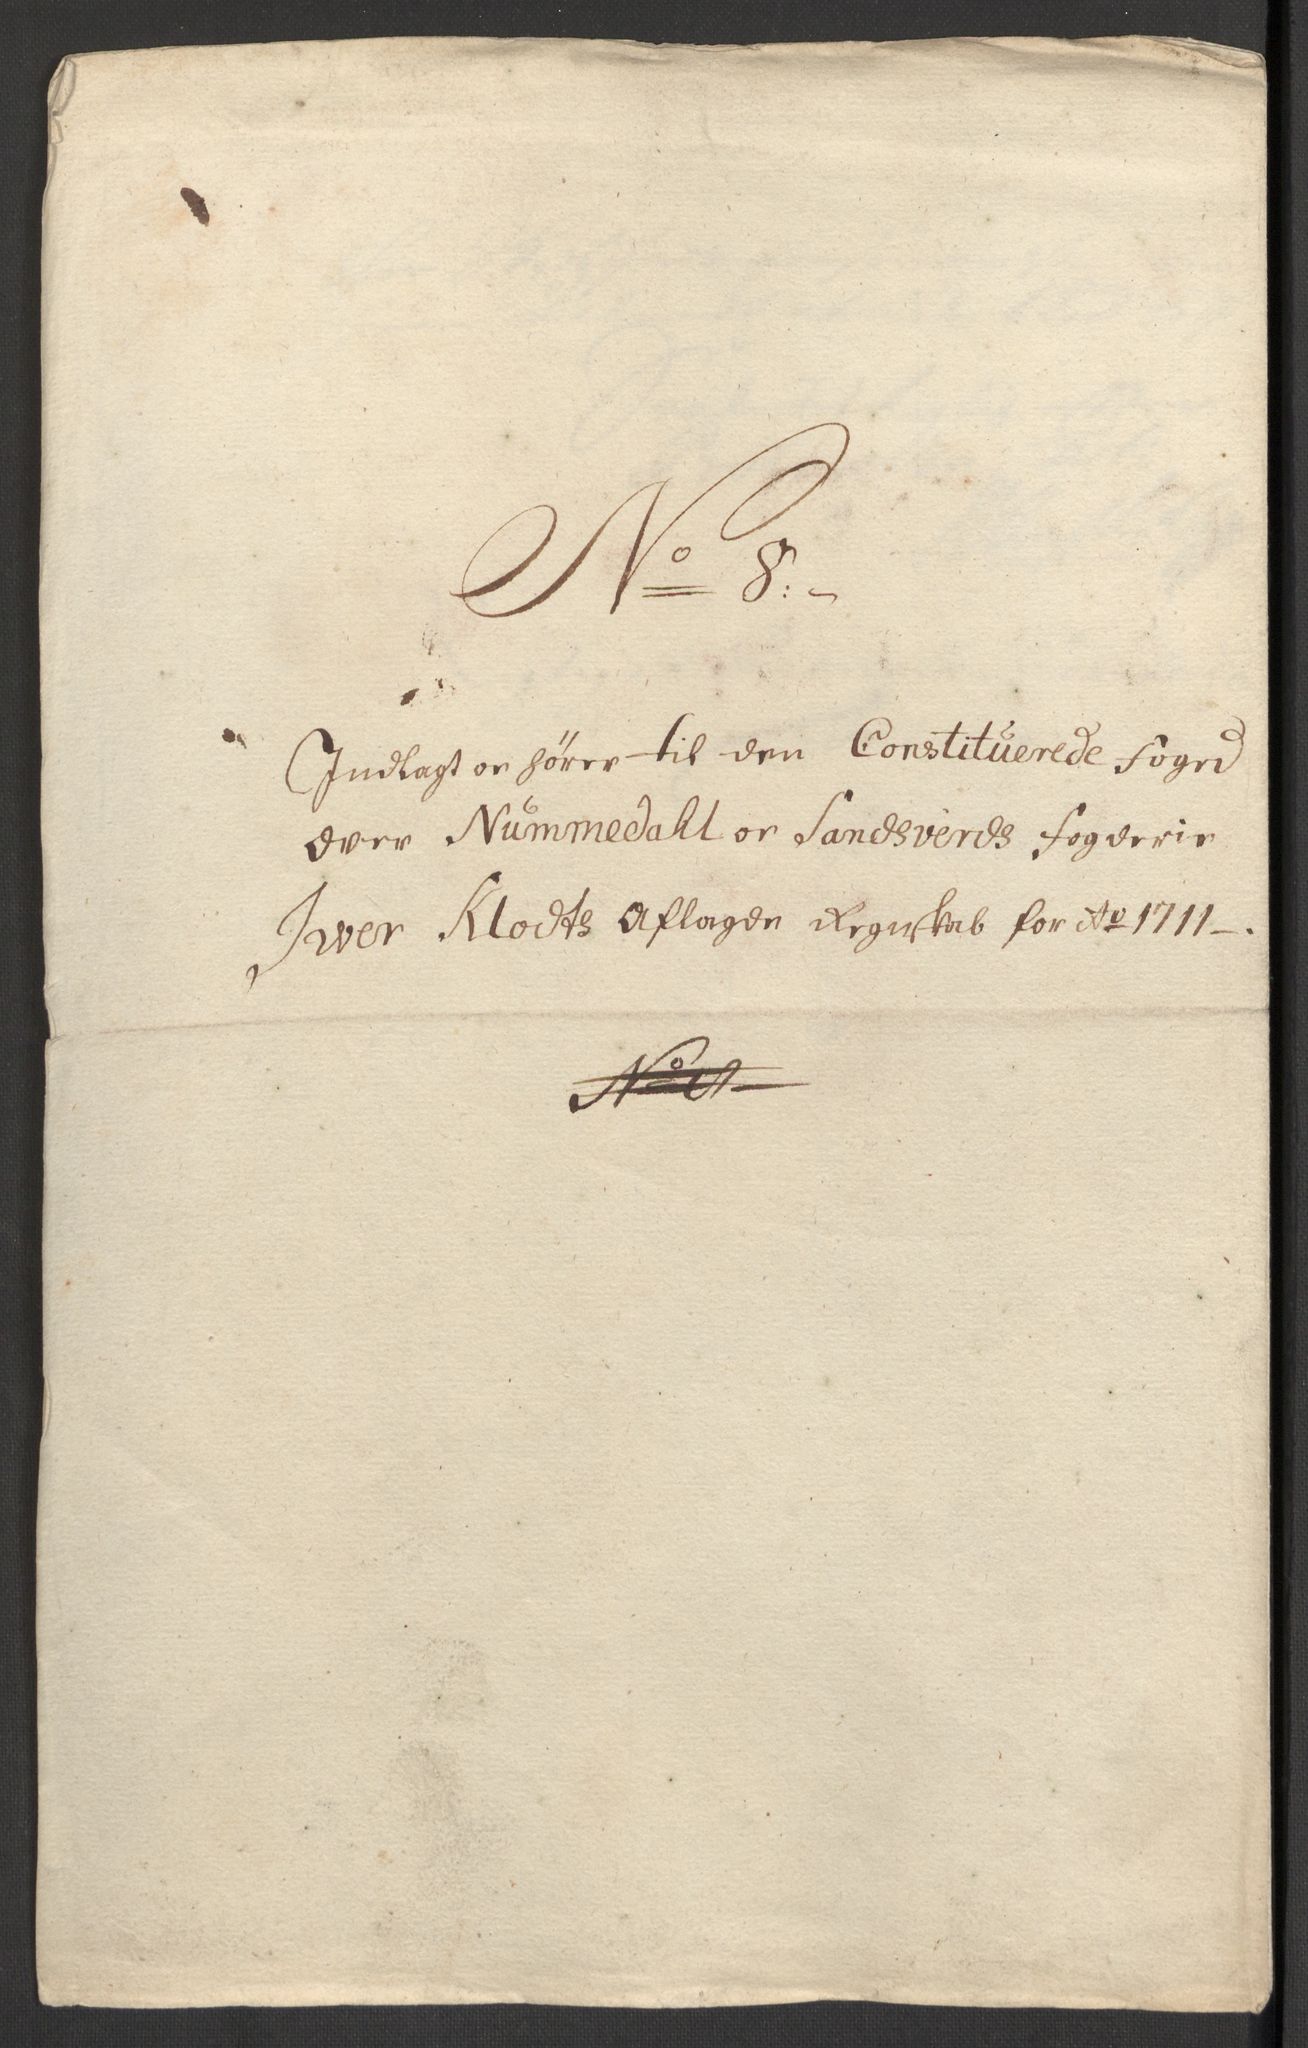 No 8:
Indlagt oc hörer til den Constitüerede foged
over Nümmedahl oc Sandsverds fogderie
Iver Klodts aflagde Regnskab for Ao 1711.
No